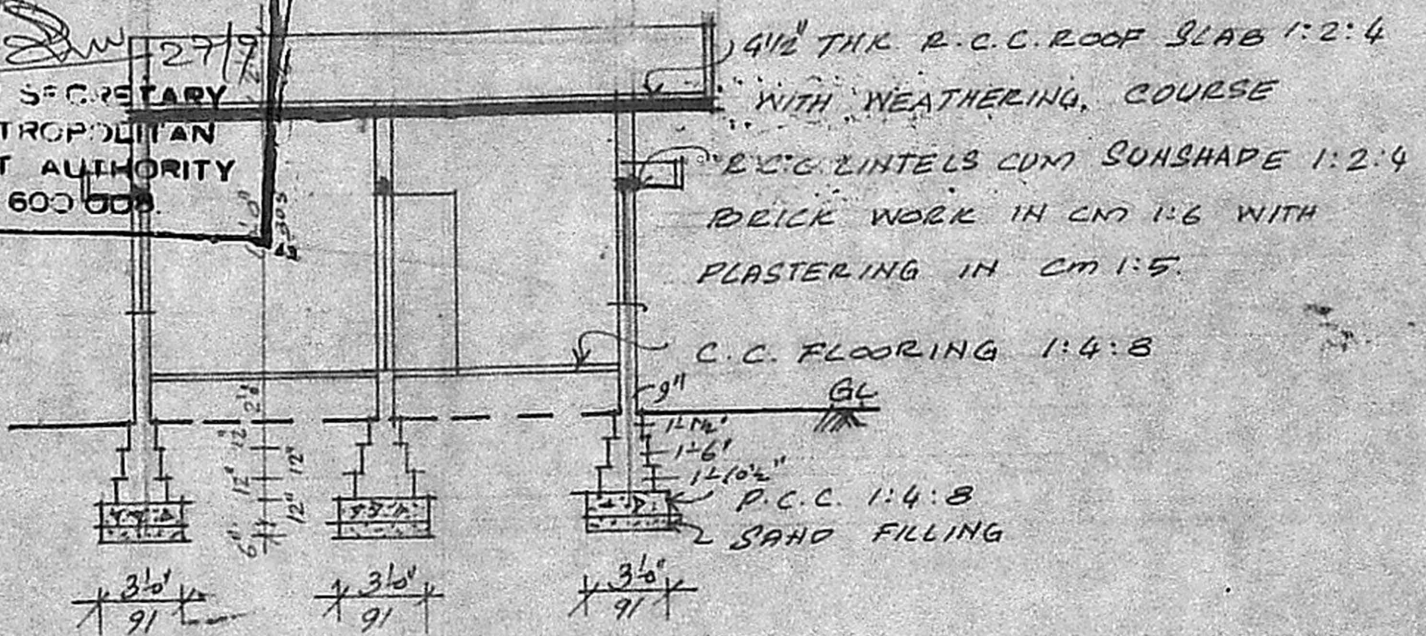 27/9
SECRETARY
TROPOLITAN
T AUTHORITY
600 008.
4½" THK. R.C.C. ROOF SLAB 1:2:4
WITH WEATHERING, COURSE
R.C.C. LINTELS CUM SUNSHADE 1:2:4
BRICK WORK IN CM 1:6 WITH
PLASTERING IN CM 1:5.
C.C. FLOORING 1:4:8
9"
GL
2'0"
12"
12"
12"
12"
6"
1'-1½"
1'-6"
1'-10½"
P.C.C. 1:4:8
SAND FILLING
3'0" 3'0" 3'0"
91 91 91